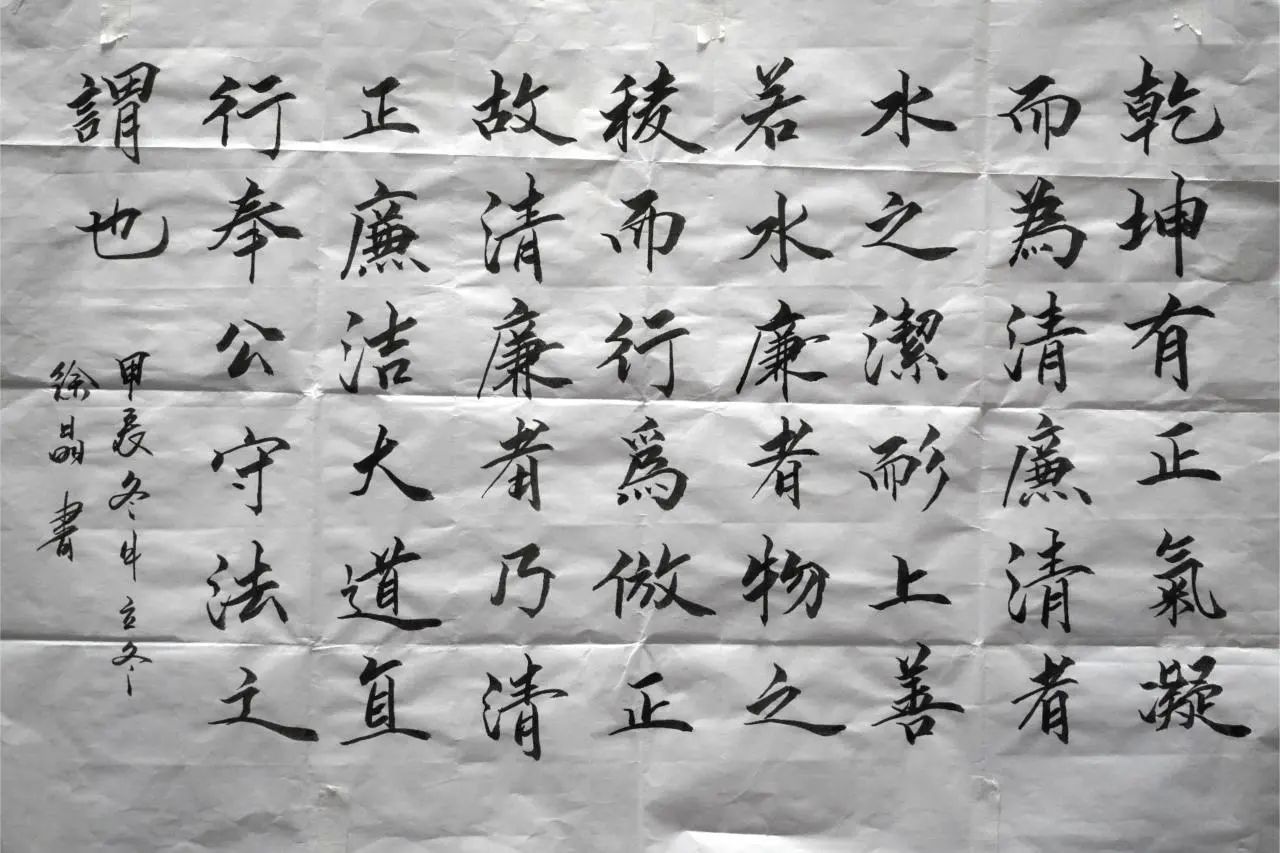 乾坤有正氣凝
而為清廉清者
水之潔而上善
若水廉者物之
稜而行爲倣正
故清廉者乃清
正廉洁大道直
行奉公守法之
謂也
甲辰冬月立冬
徐晶書